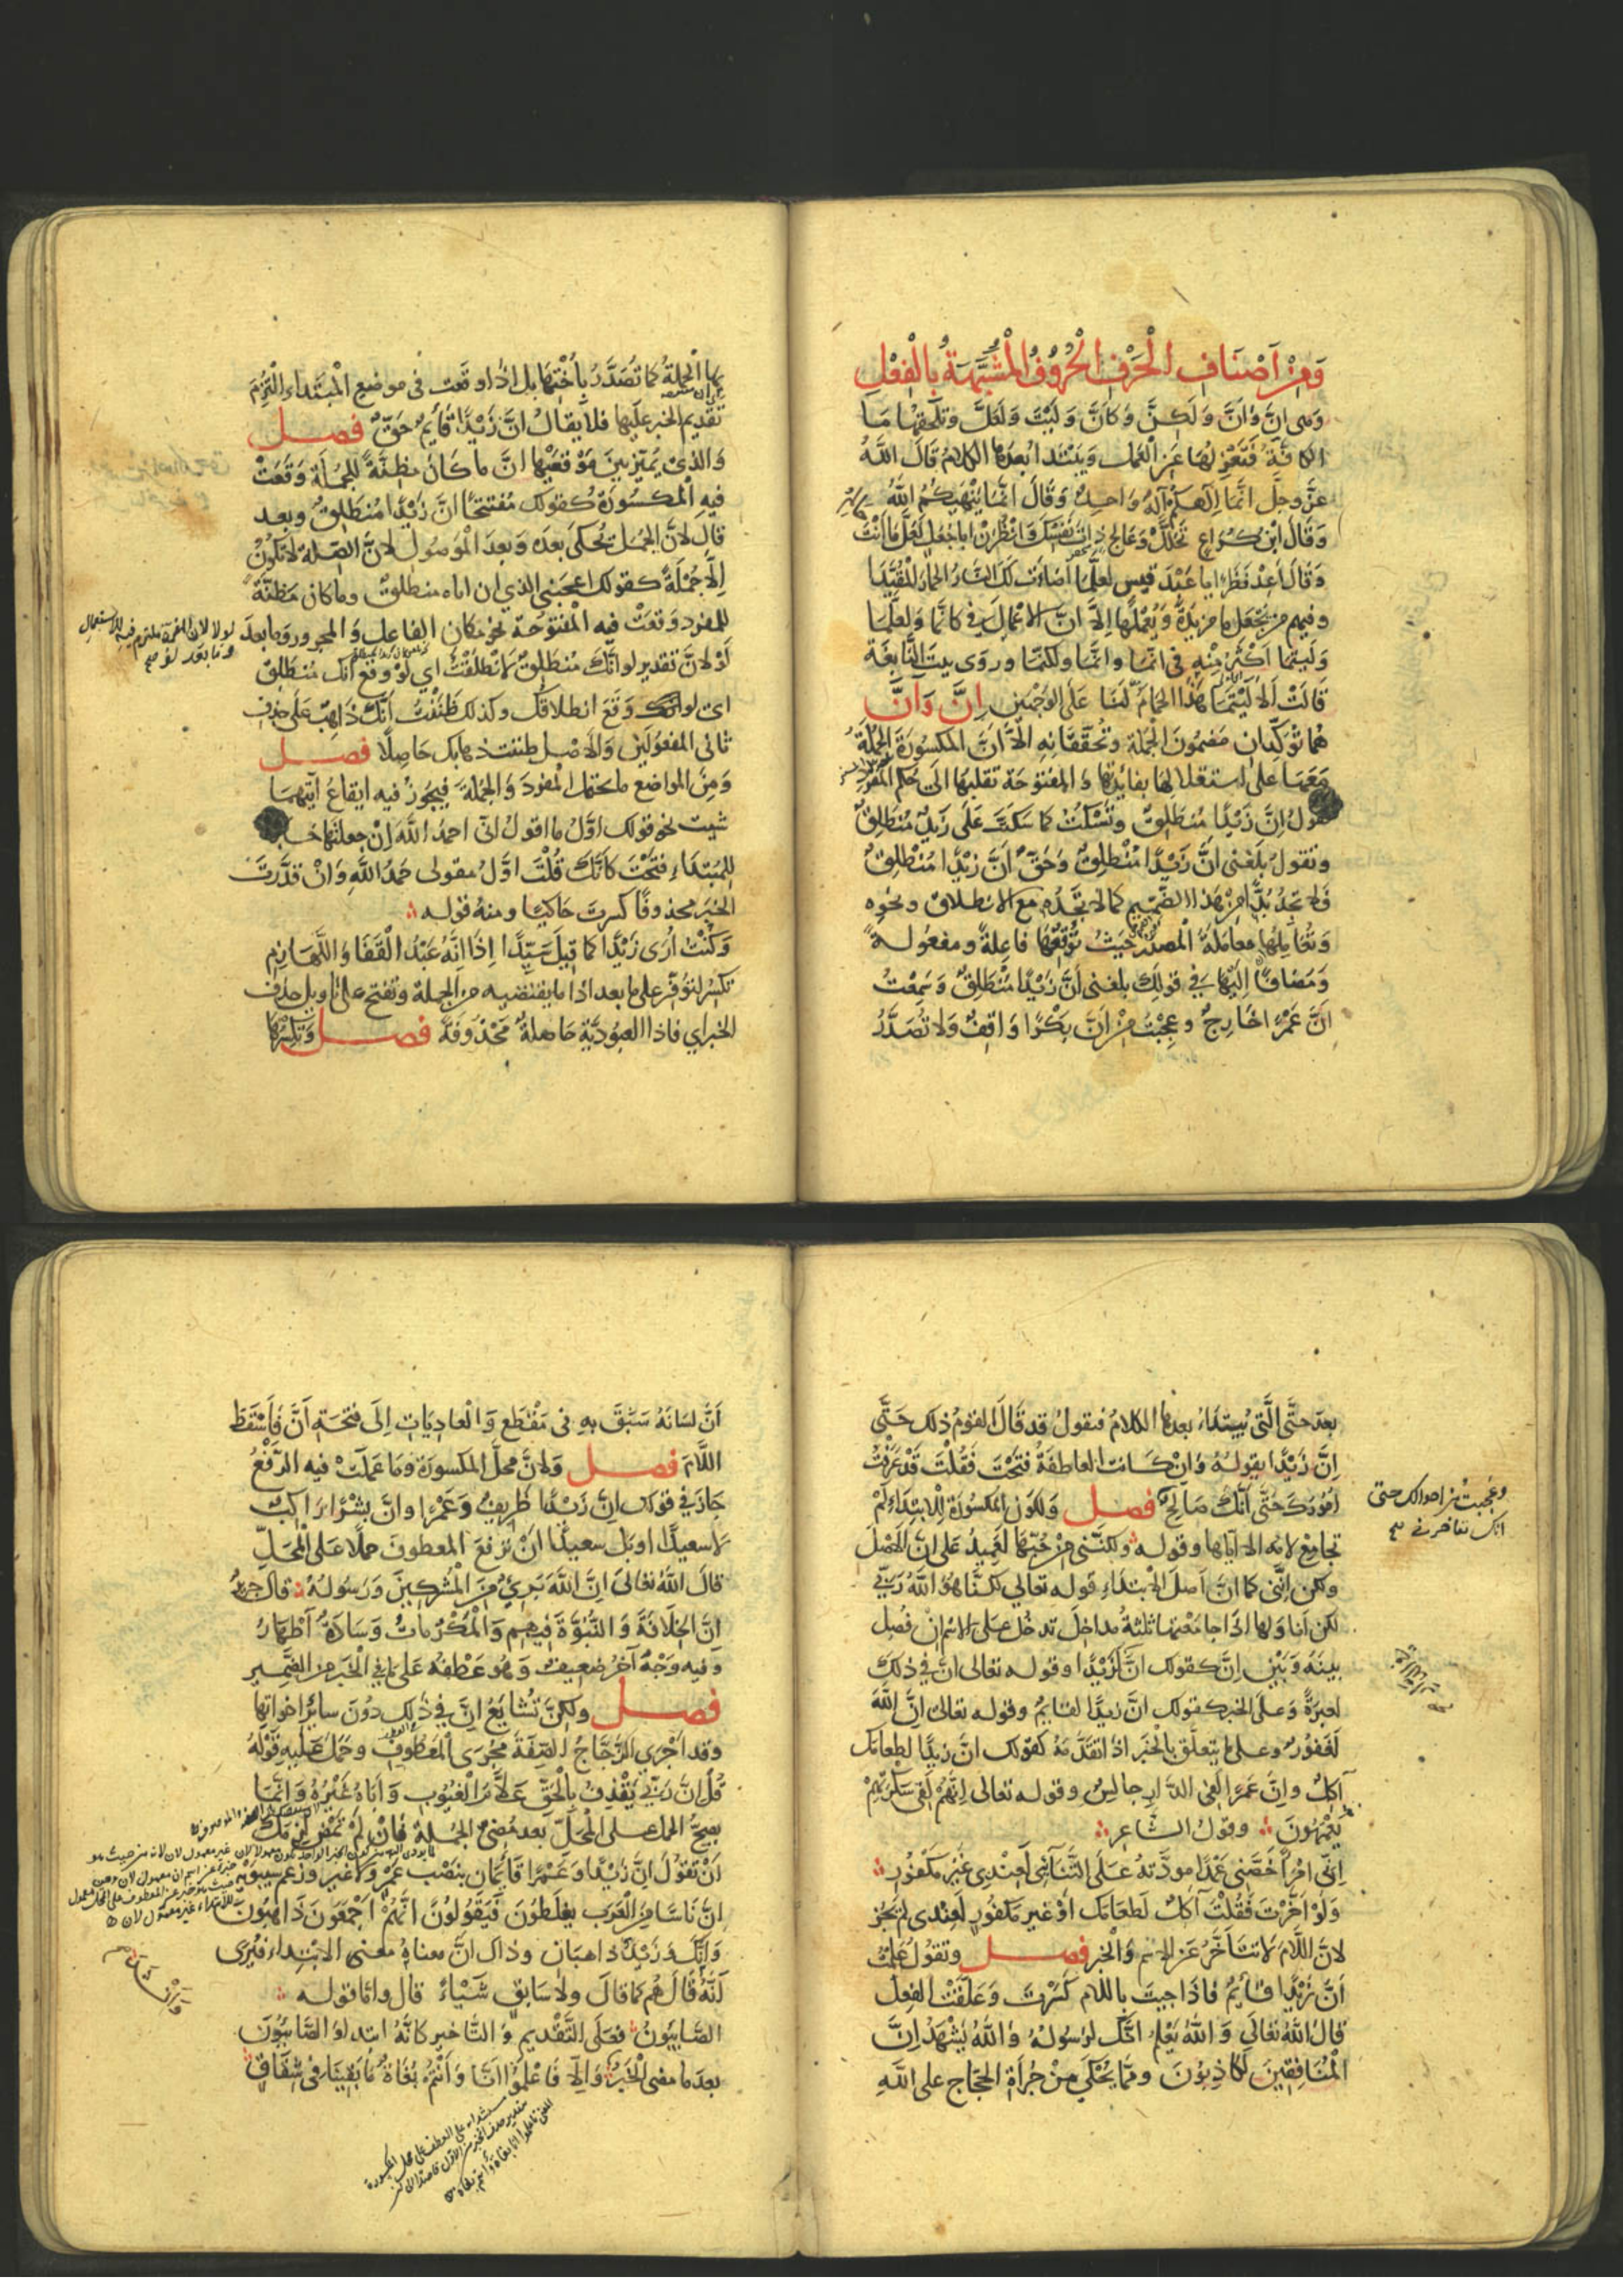 وَمِنْ اَصْنَافِ الْحَرْفِ الْحُرُوفُ الْمُشَبَّهَةُ بِالْفِعْلِ
وَهى اِنَّ وَاَنَّ وَلٰكِنَّ وَكَاَنَّ وَلَيْتَ وَلَعَلَّ وتلحقها مَا
الكافّة فتعزلها عَنِ الْعَمل ويبتدا بعدها الكلامُ قَالَ اللّٰهُ
عزَّ وجلَّ اِنَّمَا اِلٰهكم اِلهٌ وَاحِدٌ وَقَالَ انَّمَا يَنْهَيٰكُمُ اللّٰهُ
وَقَالَ ابْنُ كُرَاعٍ تَحَلَّلْ وَعَالِجْ ذاتَ نَفْسِكَ وَانْظُرَنْ ابا جُعَلٍ لَعَلَّمَا اَنْتَ
وَقَالَ اَعِدْ نَظَرًا يا عَبْدَ قيسٍ لعلَّمَا اضَاءَت لَكَ النَّارُ الحِمَارَ الْمُقَيَّدَا
ومنهم من يَجْعَل ما مزيدةً وَيُعْمِلُهَا اِلاَّ انَّ الاعْمَالَ فى كانَّمَا ولعلَّمَا
وَلَيتَمَا اَكْثَرُ مِنْهِ فى انَّمَا وانَّمَا ولكنَّمَا وروى بيت النَّابغَة
قَالَتْ اَلاَ لَيْتَمَا هٰذَا الحَمامُ لَنَا عَلَى الوَجْهَيْنِ اِنَّ وَاَنَّ
هُمَا تؤكّدان مَضمُونَ الجُملة وَتُحَقّقَانِهِ الاَّ اَنَّ المكسُورَة الجملة
مَعَهَا عَلى استقلالها بفائدتها وَالمفتوحَة تقلبُهَا الَى حُكم المُفْرد
تقولُ اِنَّ زَيْدًا مُنْطَلِقٌ وَتَسْكُتُ كما سَكَتَّ عَلَى زَيْدٌ مُنْطَلِقٌ
وتقولُ بَلَغَنى اَنَّ زَيْدًا مُنْطَلِقٌ وَحَقٌّ اَنَّ زَيْدًا مُنْطَلِقٌ
فَلا تَجدُ بُدًّا مِنْ هٰذا الضَّمِيم كما لا تجَدُه مع الانطلاق ونحوه
وَتُعَامِلُهَا مُعَامَلَةَ الْمَصْدَرِ حَيْثُ تُوْقِعُهَا فَاعِلةً ومفعُولةً
وَمُضافًا اِلَيْها فى قولِكَ بلغنى اَنَّ زَيْدًا مُنْطَلِقٌ وَسَمِعْتُ
اَنَّ عَمْرًا خَارِجٌ وعجِبْتُ مِنْ اَنَّ بَكْرًا وَاقِفٌ وَلا تُصَدَّرُ
بها الْجملةُ كَما تُصَدَّرُ بِاُخْتِهَا بل اذا وقعت فى موضع الْمبْتَداء الْتُزِمَ
تَقديم الخبر عَلَيها فلا يقالُ انَّ زَيْدًا قَائِمٌ حَقٌّ فصل
وَالذى يُمَيّز بين مَوْقعَيْها انَّ ما كَانَ مَظِنَّةً للجُملَة وَقَعَتْ
فيه المكسُورَة كقولك مُفتتحًا انَّ زَيْدًا مُنْطَلِقٌ وبعد
قال لانَّ الجُمل تُحكَى بعدَه وَبعدَ المَوْصُول لانَّ الصّلة لا تكُونُ
اِلاّ جُمْلَةً كقولك اعجَبَنى الذى ان اباه منطلقٌ وماكان مَظنَّةً
للمفرد وَقعَتْ فيه الْمفتُوحَة نحو مكان الفاعل وَالمجرور وما بعدَ لولا
لَوْ لانَّ تقدير لو انّك مُنطَلِقٌ لانطلَقْتُ اى لوْ وقع انّك مُنْطَلِقٌ
اى لو وَقعَ انطلاقك وكذلك ظَنَنْتُ اَنَّكَ ذَاهِبٌ عَلَى حذف
ثانى المفعُولَيْن وَالاَصل ظننت ذهابك حَاصِلًا فصل
وَمِنَ المواضع ما يحتمل المفردَ وَالجُملَةَ فيجُوزُ فيه ايقاعُ ايَّتهمَا
شيت نحو قولك اوّلُ ما اقولُ انّى احمدُ اللّٰهَ اِنْ جعلتَهَا خبرا
للمُبتَداء فَتحْتَ كَاَنَّكَ قُلْتَ اوّلُ مقولى حَمْدُ اللّٰهِ وَانْ قدَّرتَ
الخبرَ محذوفًا كسرتَ حَاكيًا ومنهُ قوله
وَكُنْتُ اُرَى زَيْدًا كما قيلَ سَيِّدًا اِذَا اِنّهُ عَبْدُ القَفَا وَاللَّهَازِمِ
تكسرُ لتوفّر على ما بعد اذا ما يقتضيه من الجملة وَتفتح على تاويل حذف
الخبر اي فاذا العبُودِيَّةِ حَاصلةٌ مَحْذُوفَة فصل وَتكسِرُهَا
بعدَ حتَّى الَّتى يُبتداءُ بعدها الكلامُ فتقولُ قد قَالَ القومُ ذلك حَتَّى
اِنَّ زَيْدًا يقولهُ وَانْ كَانت العاطفَةُ فَتَحْتَ فَقُلْتَ قَدْ عَرَفْتُ
اُمُورَكَ حَتَّى اَنَّكَ صَالِحٌ فصل وَلكَون المكسُورة لِلابتداء لمْ
تجامِعْ لامُه الا اِيَّاها وقوله وَلكِنَّنى مِنْ حُبِّهَا لعَمِيدُ عَلى انَّ الاَصْلَ
ولكن اِنَّنى كما انَّ اَصلَ قوله تعالى لكنَّا هُوَ اللّٰهُ رَبّى
لكن اَنا ولها اذَا جامَعَتها ثلثةُ مداخلَ تدخُل عَلَى الاِسْم انْ فُصِلَ
بينَهُ وَبَيْن اِنَّ كقولك انَّ لَزَيْدًا وقوله تعالى انَّ فى ذلكَ
لعبرَةً وَعلَى الخبر كقولك انَّ زيدًا لقائمٌ وقوله تعالى اِنَّ اللّٰهَ
لَغَفورٌ وعلى ما يتعلَّق بالخَبَر اذا تقَدَّمَهُ كقولك انَّ زيدًا لطعامَكَ
آكِلٌ وانَّ عَمرًا لَفى الدَّارِ جالِسٌ وقوله تعالى اِنَّهُمْ لَفى سَكْرَتِهِمْ
يَعْمَهُونَ وقولُ الشَّاعر
اِنَّ امْرَأً خَصَّنى عَمْدًا مودَّتَهُ عَلَى التَّنَائى لَعِنْدى غَيْرُ مَكْفُورِ
وَلَوْ اَخَّرْتَ فَقُلْتَ آكلٌ لَطعَامَكَ اَوْ غير مَكفُورٍ لَعندى لم يَجُز
لانَّ اللَّامَ لا تتَاَخَّرُ عَن الاسْم وَالخبر فصل وتقولُ عَلِمْتُ
اَنَّ زَيْدًا قائِمٌ فَاذَا جيتَ باللام كَسَرْتَ وَعَلَّقْتَ الفِعلَ
قالَ اللّٰهُ تعَالىَ وَاللّٰهُ يَعْلَمُ انَّكَ لرَسُولهُ وَاللّٰهُ يَشْهَدُ اِنَّ
الْمُنَافِقِينَ لَكَاذِبُونَ وممَّا يُحْكَى مِنْ جُرْأَةِ الحجّاج على اللّٰهِ
وعجبت من احوالك حتى
انك تفاخرنى صح
اَنَّ لسَانَهُ سَبَقَ بهِ فى مَقْطع وَالْعادِيَاتِ اِلَى فتحَة اَنَّ فَاَسْقَطَ
اللَّامَ فصل وَلانَّ محلَّ المكسُورَة وما عَملَتْ فيه الرَّفْعُ
جَازَ فى قولك اِنَّ زَيْدًا ظَرِيفٌ وَعَمْرًا وانَّ بِشْرًا رَاكبٌ
لا سعيدًا او بل سعيدًا اَنْ تَرْفَعَ المعطوفَ حملًا عَلى المحَلِّ
قالَ اللّٰهُ تعَالىَ اِنَّ اللّٰهَ بَرِىءٌ مِنَ الْمُشْرِكِينَ وَرَسُولُهُ قَال جريرٌ
انَّ الخِلَافَةَ وَالنُّبُوَّةَ فيهِم وَالمَكْرُمَاتُ وَسَادَةٌ اَطْهَارُ
وفيه وَجْهٌ آخَرُ ضعيفٌ وَهو عَطْفُه عَلَى ما فى الخبَر من الضَّمير
فصل ولكِنَّ تُشَايِعُ اِنَّ فى ذَلِك دُونَ سَائِرِ اخواتها
وقد اَجْرَى الزَّجَّاجُ الصِّفَةَ مجْرَى المعطوف وَحَمَل عَلَيهِ قَوْلَهُ
قُل اِنَّ رَبِّى يَقْذِفُ بالْحَقّ عَلاَّمُ الْغُيُوبِ وَاَبَاهُ غَيْرُهُ وَانَّمَا
يصحُّ الحملُ على المحلّ بَعدَ مُضىّ الجُملَة فَانْ لم تَمْضِ لزِمَكَ
اَنْ تقُولَ اِنَّ زَيْدًا وَعَمْرًا قَائِمَان بنَصْب عَمْرٍو لا غَير وزَعمَ سيبويه
انَّ نَاسًا مِنَ الْعَرَبِ يغْلَطُونَ فَيَقُولُونَ انَّهُمْ اَجْمَعُونَ ذَاهِبُونَ
وَاِنَّكَ وَزَيْدٌ ذَاهبَانِ وذاك انَّ معناهُ معنى الابتداء فيُرَى
اَنَّهُ قَالَ هُمْ كما قَالَ وَلا سَابِقٍ شَيْئًا قال وامّا قوله
الصَّابِئُونَ فعلَى التَّقديم وَالتَّاخير كانَّهُ ابتداء الصَّابئُونَ
بعدَ ما مضى الْخَبَر وَاِلاَّ فَاعْلَمُوا انَّا وَاَنْتُمْ بُغَاةٌ مَا بَقِينَا فى شِقَاقِ